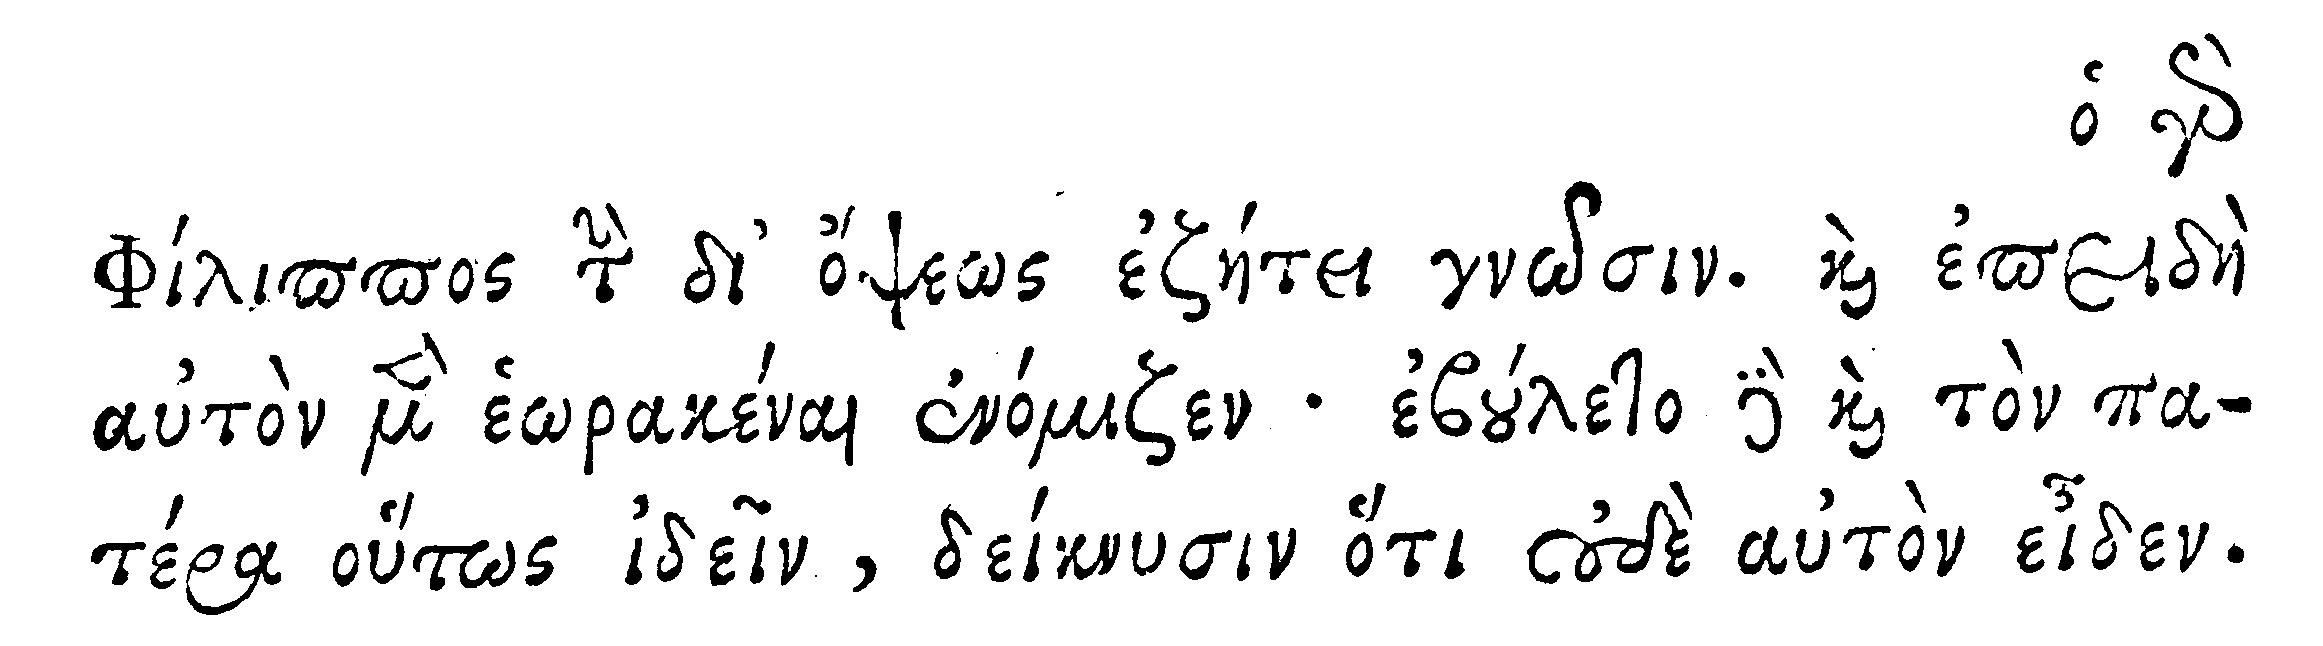 ὁ γὰρ
Φίλιππος τὴν δι᾽ ὄψεως ἐζήτει γνῶσιν. καὶ ἐπειδὴ
αὐτὸν μὲν ἑωρακέναι ἐνόμιζεν · ἐβούλετο δὲ καὶ τὸν πα-
τέρα οὕτως ἰδεῖν, δείκνυσιν ὅτι οὐδὲ αὐτὸν εἶδεν.